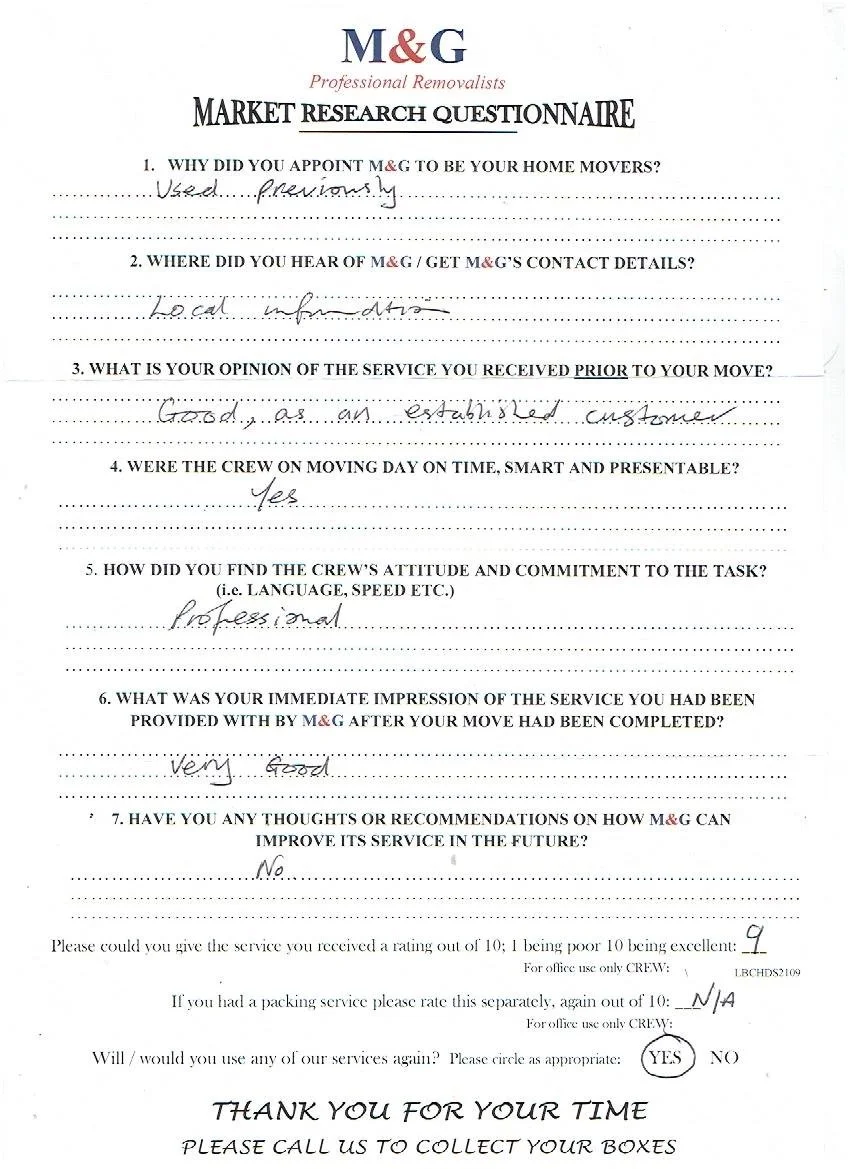 M&G
Professional Removalists
MARKET RESEARCH QUESTIONNAIRE
1. WHY DID YOU APPOINT M&G TO BE YOUR HOME MOVERS?
Used Previously
2. WHERE DID YOU HEAR OF M&G / GET M&G'S CONTACT DETAILS?
Local information
3. WHAT IS YOUR OPINION OF THE SERVICE YOU RECEIVED PRIOR TO YOUR MOVE?
Good, as an established customer
4. WERE THE CREW ON MOVING DAY ON TIME, SMART AND PRESENTABLE?
Yes
5. HOW DID YOU FIND THE CREW'S ATTITUDE AND COMMITMENT TO THE TASK?
(i.e. LANGUAGE, SPEED ETC.)
Professional
6. WHAT WAS YOUR IMMEDIATE IMPRESSION OF THE SERVICE YOU HAD BEEN
PROVIDED WITH BY M&G AFTER YOUR MOVE HAD BEEN COMPLETED?
Very Good
7. HAVE YOU ANY THOUGHTS OR RECOMMENDATIONS ON HOW M&G CAN
IMPROVE ITS SERVICE IN THE FUTURE?
No
Please could you give the service you received a rating out of 10; 1 being poor 10 being excellent: 9
For office use only CREW: LBCHDS2109
If you had a packing service please rate this separately, again out of 10: N/A
For office use only CREW:
Will / would you use any of our services again? Please circle as appropriate: YES NO
THANK YOU FOR YOUR TIME
PLEASE CALL US TO COLLECT YOUR BOXES